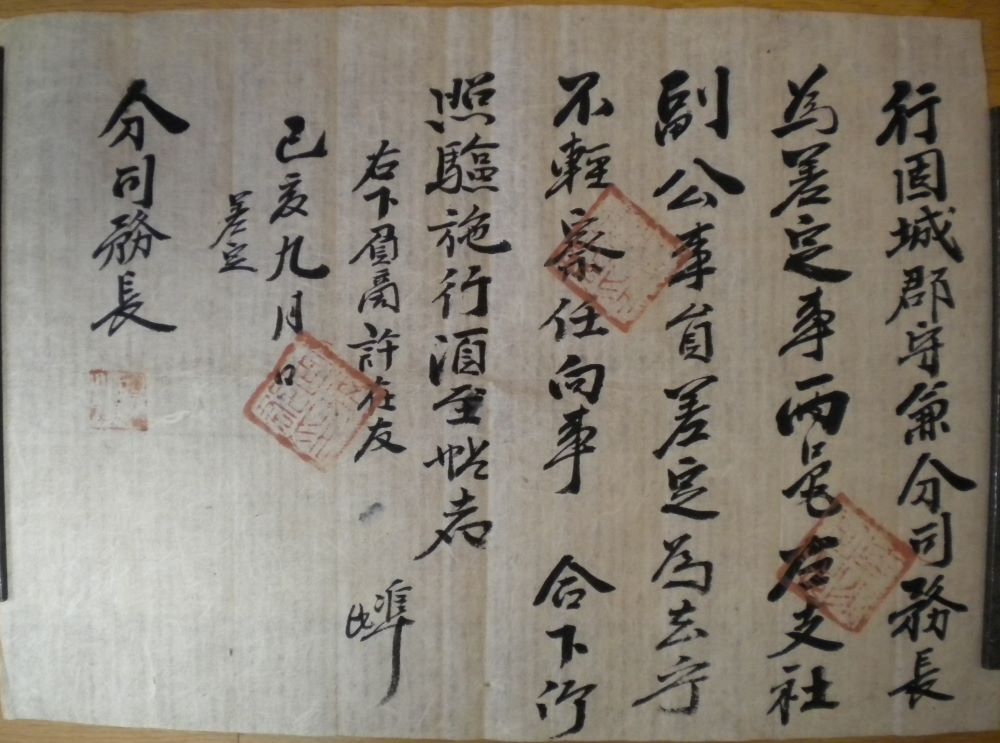 行固城郡守兼分司務長
為差定事而黽 右支社
副公事員差定為去乎
不輕察任向事 合下仰
照驗施行須至帖者
右下 許在友
己亥九月 日
差定
分司務長